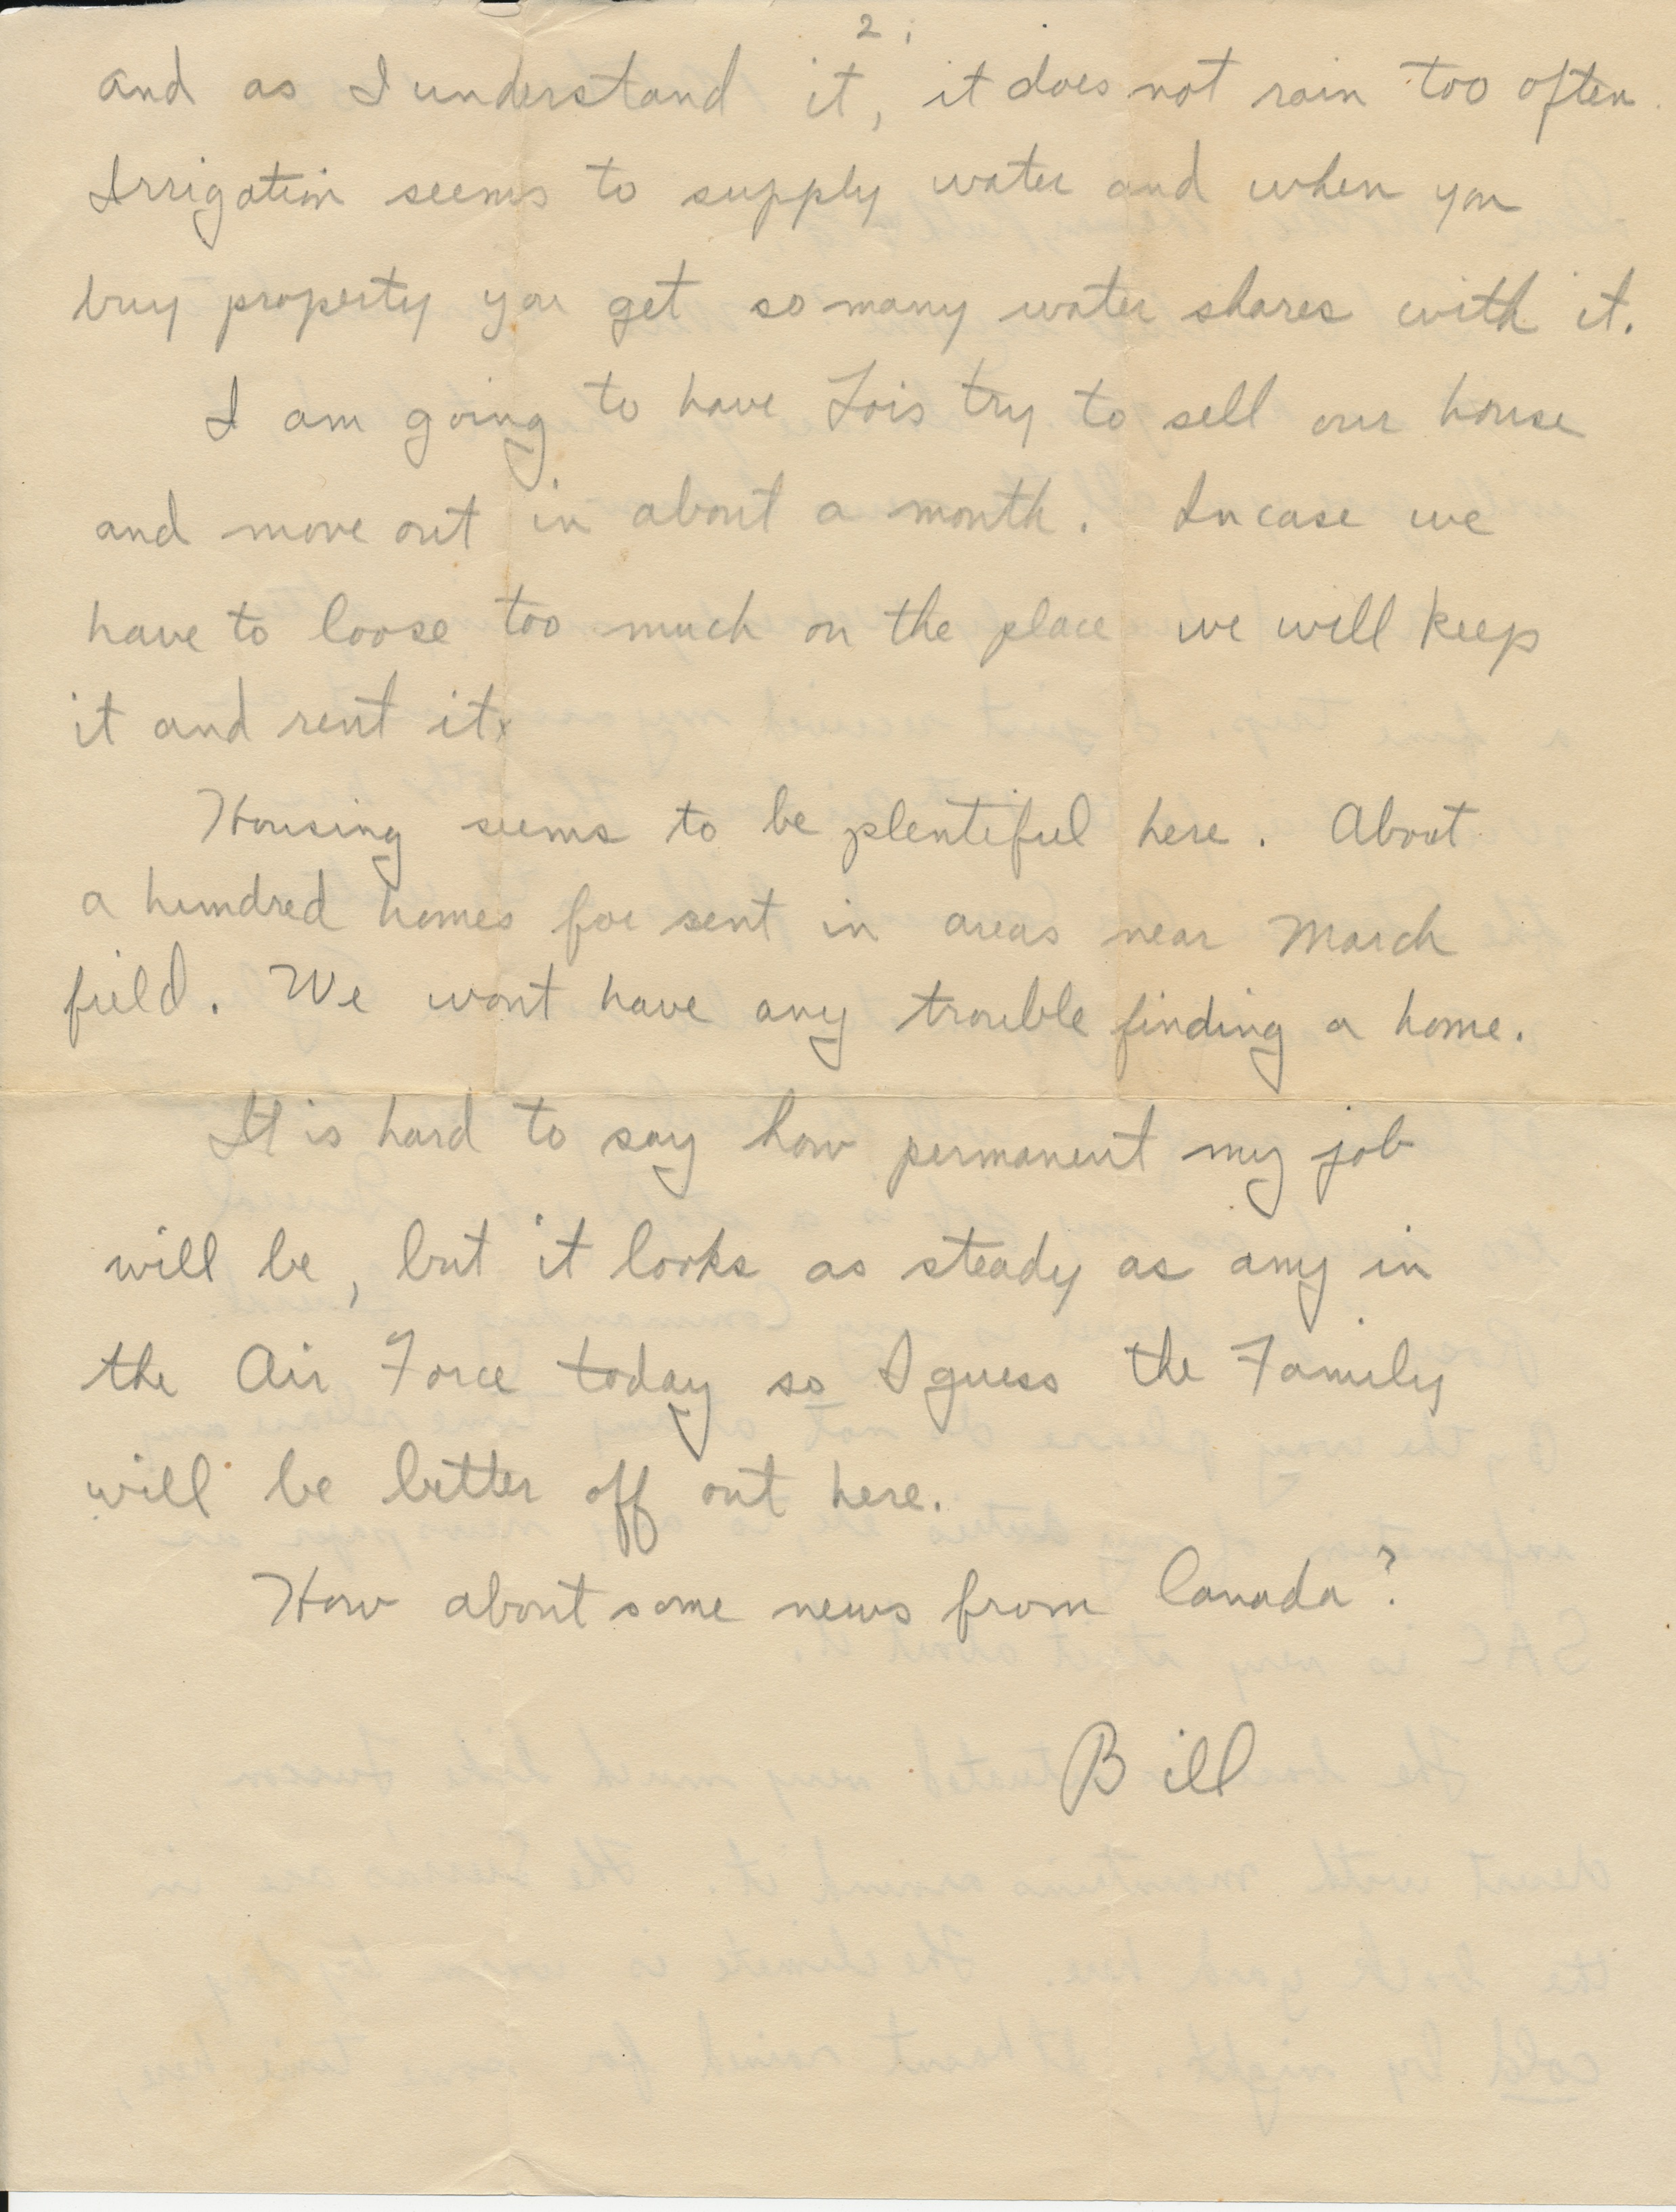 2
and as I understand it, it does not rain too often.
Irrigation seems to supply water and when you
buy property you get so many water shares with it.
I am going to have Lois try to sell our house
and move out in about a month. Incase we
have to loose too much on the place we will keep
it and rent it.
Housing seems to be plentiful here. About
a hundred homes for rent in areas near March
field. We wont have any trouble finding a home.
It is hard to say how permanent my job
will be, but it looks as steady as any in
the Air Force today so I guess the Family
will be better off out here.
How about some news from Canada?
Bill